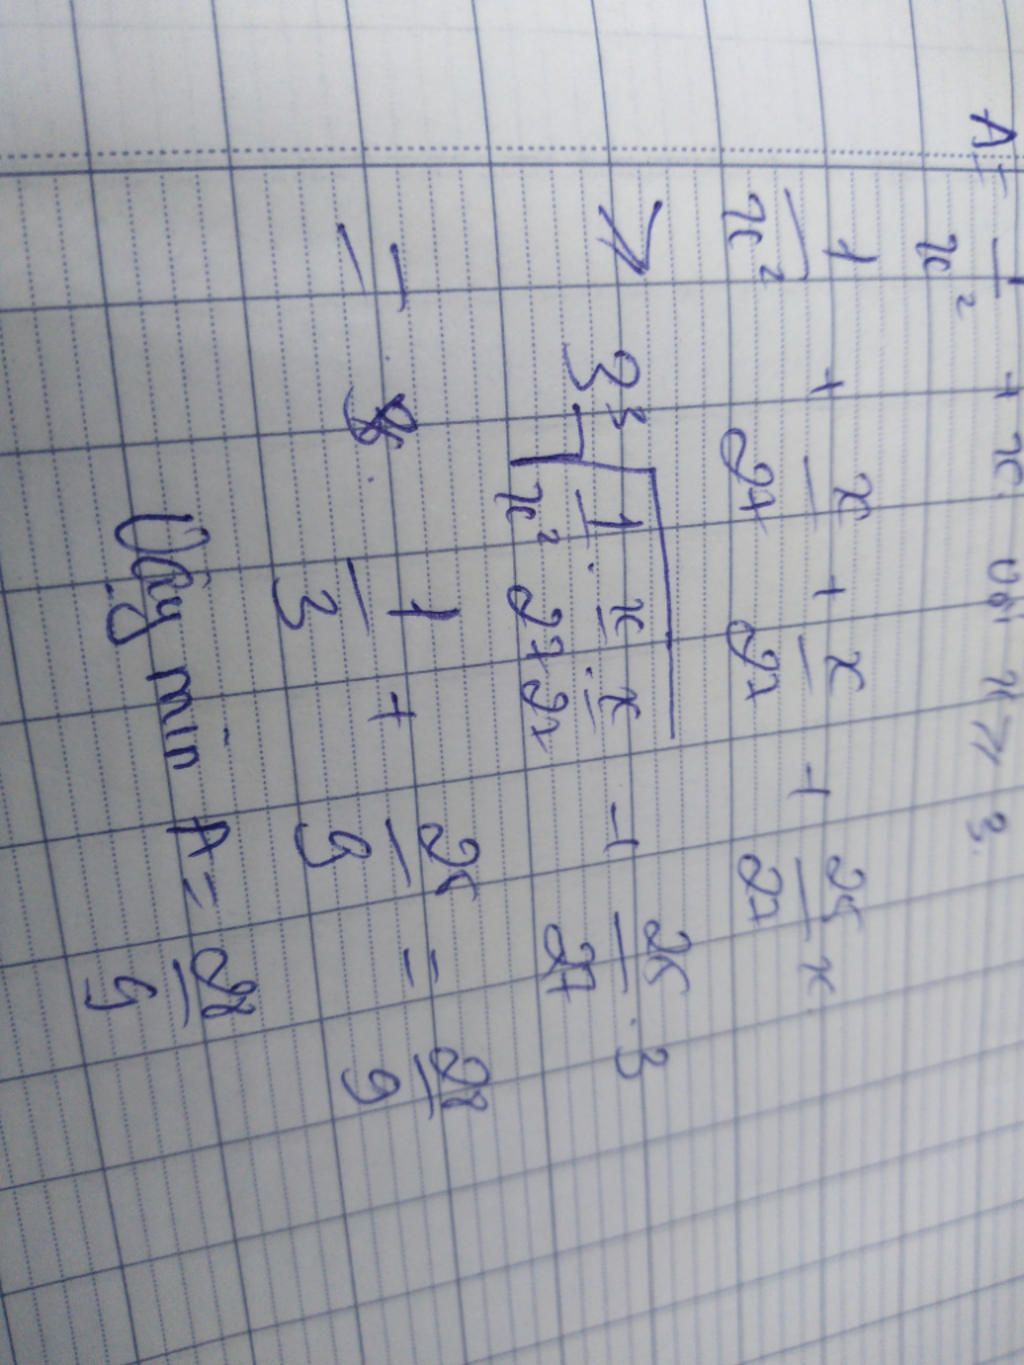 A = 1/x² + x với x ≥ 3.
1/x² + x/27 + x/27 + 25/27 x.
≥ 3 ³√(1/x² · x/27 · x/27) + 25/27 · 3
= 1/3 + 25/9 = 28/9
Vậy min A = 28/9